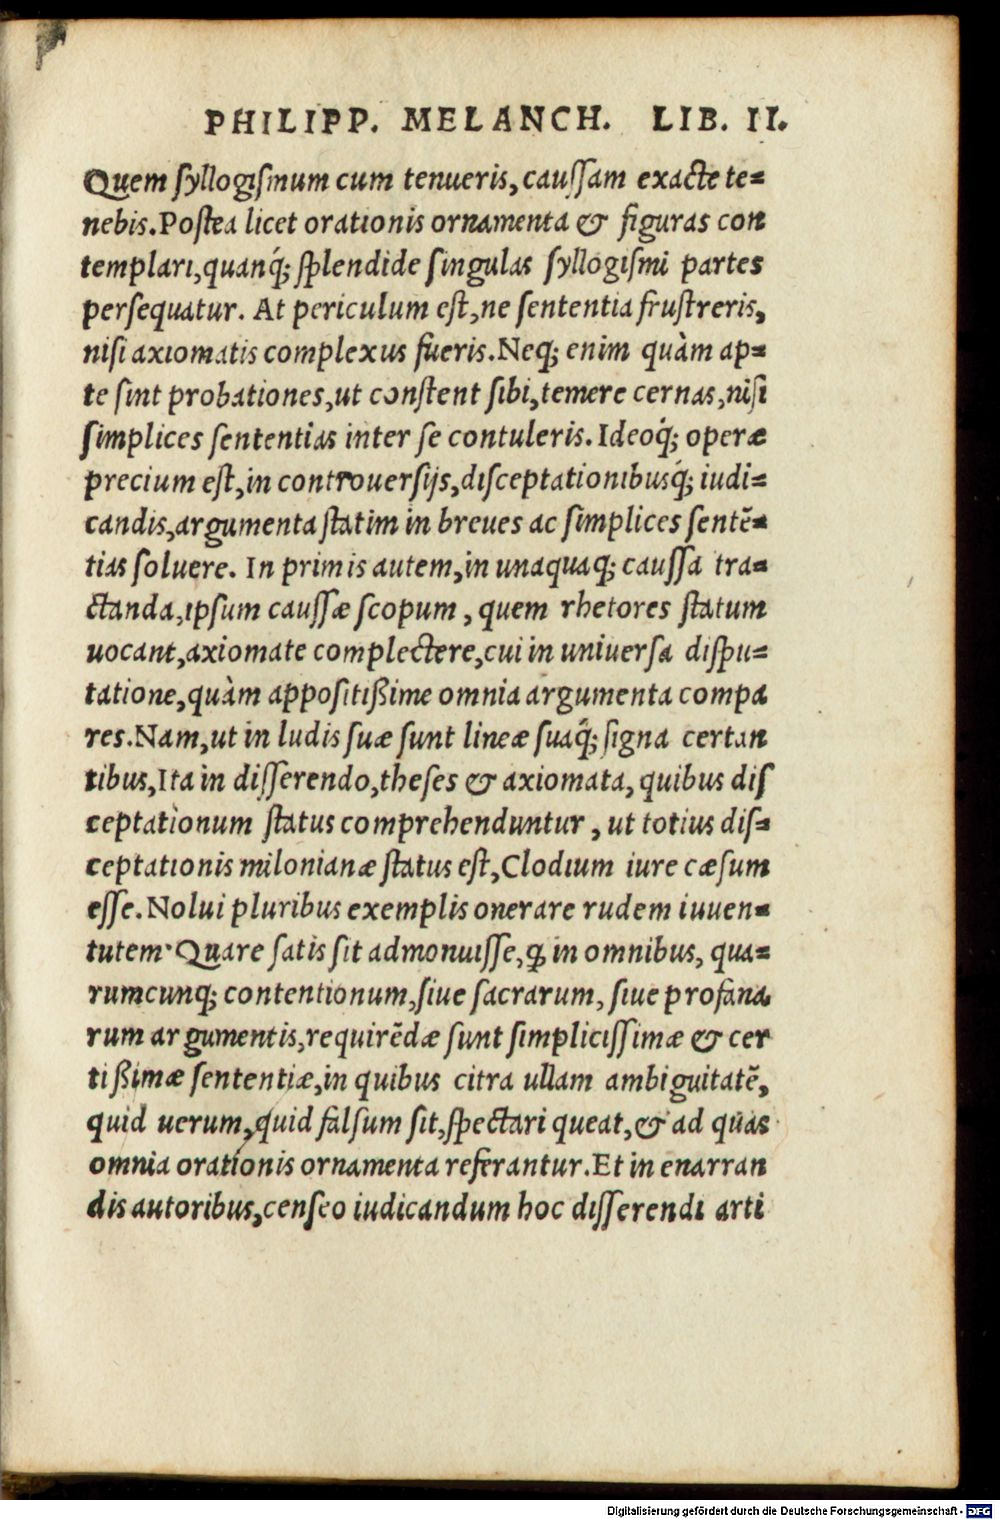 PHILIPP. MELANCH. LIB. II.
Quem syllogismum cum tenueris, caussam exacte te=
nebis. Postea licet orationis ornamenta & figuras con
templari, quanq́; splendide singulas syllogismi partes
persequatur. At periculum est, ne sententia frustreris,
nisi axiomatis complexus fueris. Neq; enim quàm ap=
te sint probationes, ut constent sibi, temere cernas, nisi
simplices sententias inter se contuleris. Ideoq́; operæ
precium est, in controuersijs, disceptationibusq́; iudi=
candis, argumenta statim in breues ac simplices sentē=
tias soluere. In primis autem, in unaquaq; caussa tra=
ctanda, ipsum caussæ scopum, quem rhetores statum
uocant, axiomate complectere, cui in uniuersa dispu=
tatione, quàm appositißime omnia argumenta compa
res. Nam, ut in ludis suæ sunt lineæ suaq́; signa certan
tibus, Ita in disserendo, theses & axiomata, quibus dis
ceptationum status comprehenduntur, ut totius dis=
ceptationis milonianæ status est, Clodium iure cæsum
esse. Nolui pluribus exemplis onerare rudem iuuen=
tutem· Quare satis sit admonuisse, ꝙ in omnibus, qua=
rumcunq; contentionum, siue sacrarum, siue profana
rum argumentis, requirēdæ sunt simplicissimæ & cer
tißimæ sententiæ, in quibus citra ullam ambiguitatē,
quid uerum, quid falsum sit, spectari queat, & ad quas
omnia orationis ornamenta referantur. Et in enarran
dis autoribus, censeo iudicandum hoc disserendi arti
Digitalisierung gefördert durch die Deutsche Forschungsgemeinschaft - DFG